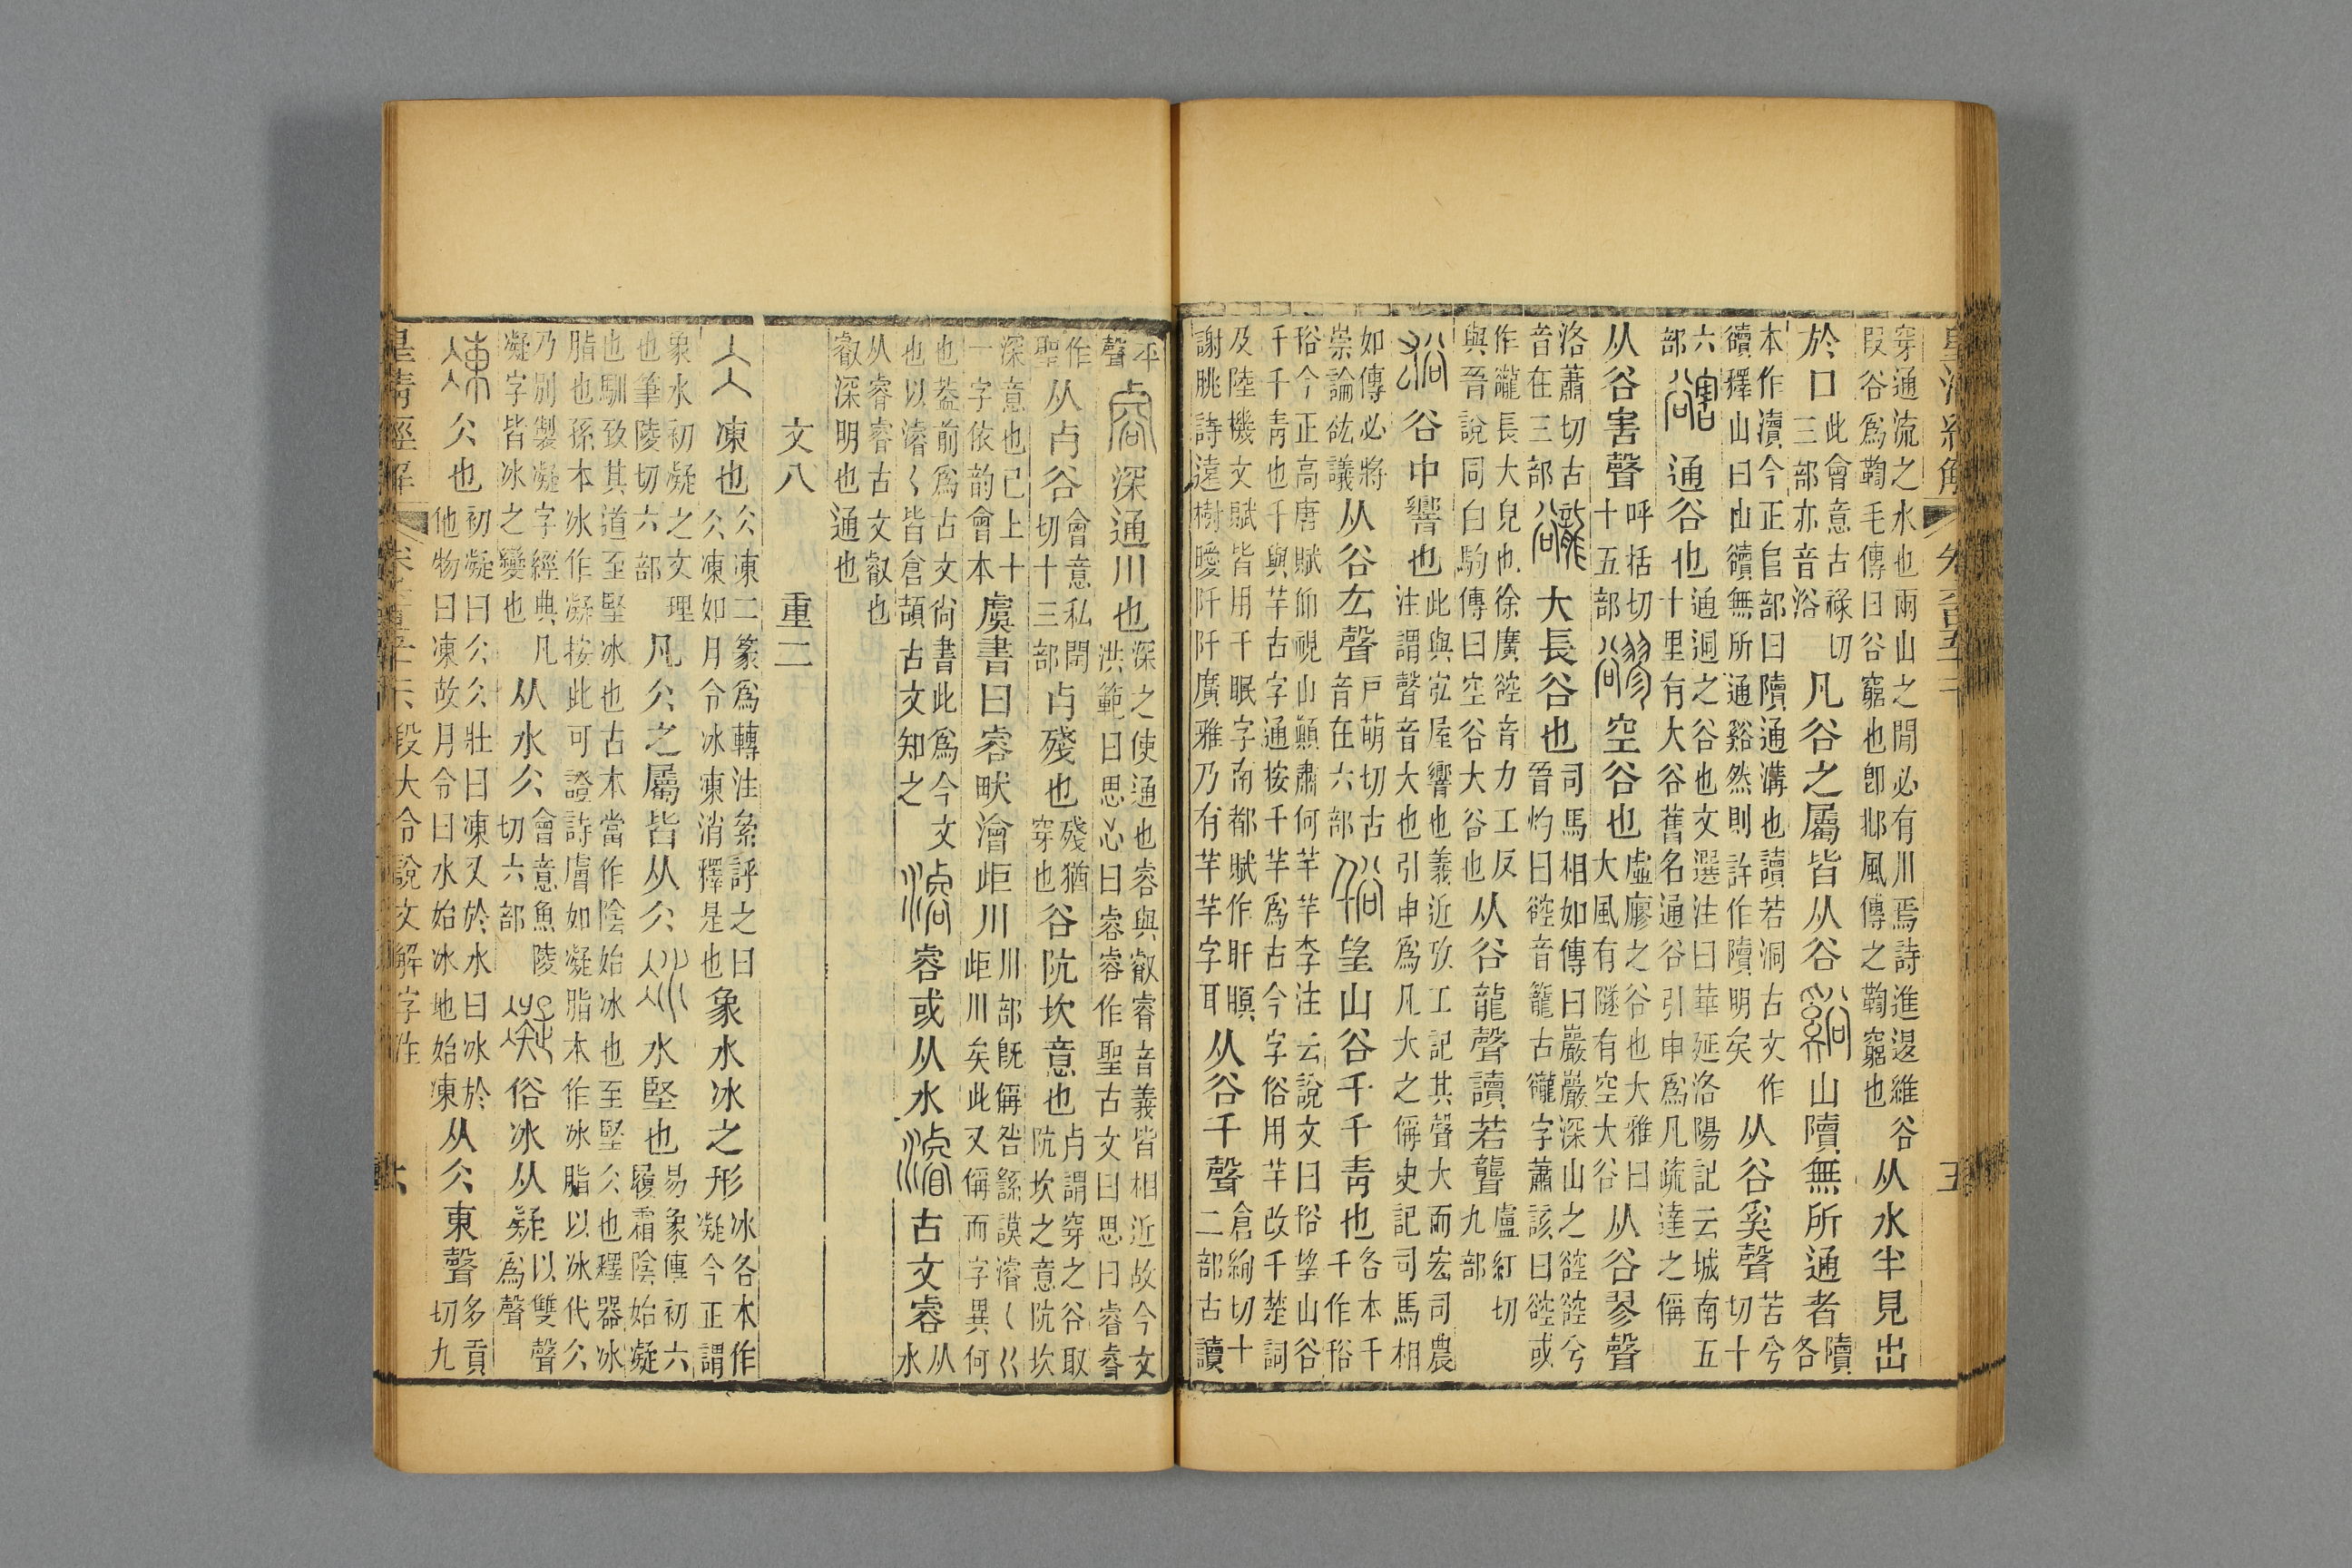 皇清經解 卷六百五十二 五
穿通流之水也兩山之閒必有川焉詩進退維谷叚谷爲鞫毛傳曰谷窮也卽邶風傳之鞫窮也从水半見出
於口此會意古祿切三部亦音浴凡谷之屬皆从谷𧯋山隫無所通者隫各
本作瀆今正𨸏部曰隫通溝也讀若洞古文作𧷏釋山曰山𧷏無所通谿然則許作隫明矣从谷奚聲苦兮切十
六部豁通谷也通迵之谷也文選注曰華延洛陽記云城南五十里有大谷舊名通谷引申爲凡疏達之偁
从谷害聲呼括切十五部豂空谷也虛廫之谷也大雅曰大風有隧有空大谷从谷翏聲
洛蕭切古音在三部豅大長谷也司馬相如傳曰巖巖深山之谾谾兮晉灼曰谾音籠古豅字蕭該曰谾或
作豅長大皃也徐廣谾音力工反與晉說同白駒傳曰空谷大谷也从谷龍聲讀若聾盧紅切九部
谹谷中響也此與宖屋響也義近攷工記其聲大而宏司農注謂聲音大也引申爲凡大之偁史記司馬相
如傳必將崇論谹議从谷厷聲戶萌切古音在六部谸望山谷千千靑也各本千千作谸
谸今正高唐賦仰視山顚肅何芊芊李注云說文曰谸望山谷千千靑也千與芊古字通按千千芊爲古今字俗用芊改千楚詞
及陸機文賦皆用千眠字南都賦作肝瞑謝朓詩遠樹曖阡阡廣雅乃有芊芊字耳从谷千聲倉絢切十二部古讀
平聲㕡深通川也深之使通也㕡與叡睿音義皆相近故今文洪範曰思心曰㕡㕡作聖古文曰思曰睿睿
作聖从𣦵谷會意私閏切十三部𣦵殘也殘猶穿也谷阬坎意也𣦵謂穿之谷取阬坎之意阬坎
深意也已上十一字依韵會本虞書曰㕡畎澮歫川川部旣偁咎繇謨濬𡿨巜歫川矣此又偁而字異何
也葢前爲古文尙書此爲今文也以濬𡿨皆倉頡古文知之濬㕡或从水濬古文㕡从水
从睿睿古文叡也叡深明也通也
文八 重二
仌凍也仌凍二篆爲轉注絫評之曰仌凍如月令冰凍消釋是也象水冰之形冰各本作凝今正謂
象水初凝之文理也筆陵切六部凡仌之屬皆从仌冰水堅也易象傳初六履霜陰始凝
也馴致其道至堅冰也古本當作陰始冰也至堅仌也釋器冰脂也孫本冰作凝按此可證詩膚如凝脂本作冰脂以冰代仌
乃別製凝字經典凡凝字皆冰之變也从水仌會意魚陵切六部凝俗冰从疑以雙聲爲聲
凍仌也初凝曰仌仌壯曰凍又於水曰冰於他物曰凍故月令曰水始冰地始凍从仌東聲多貢切九
皇清經解 段大令說文解字注 六